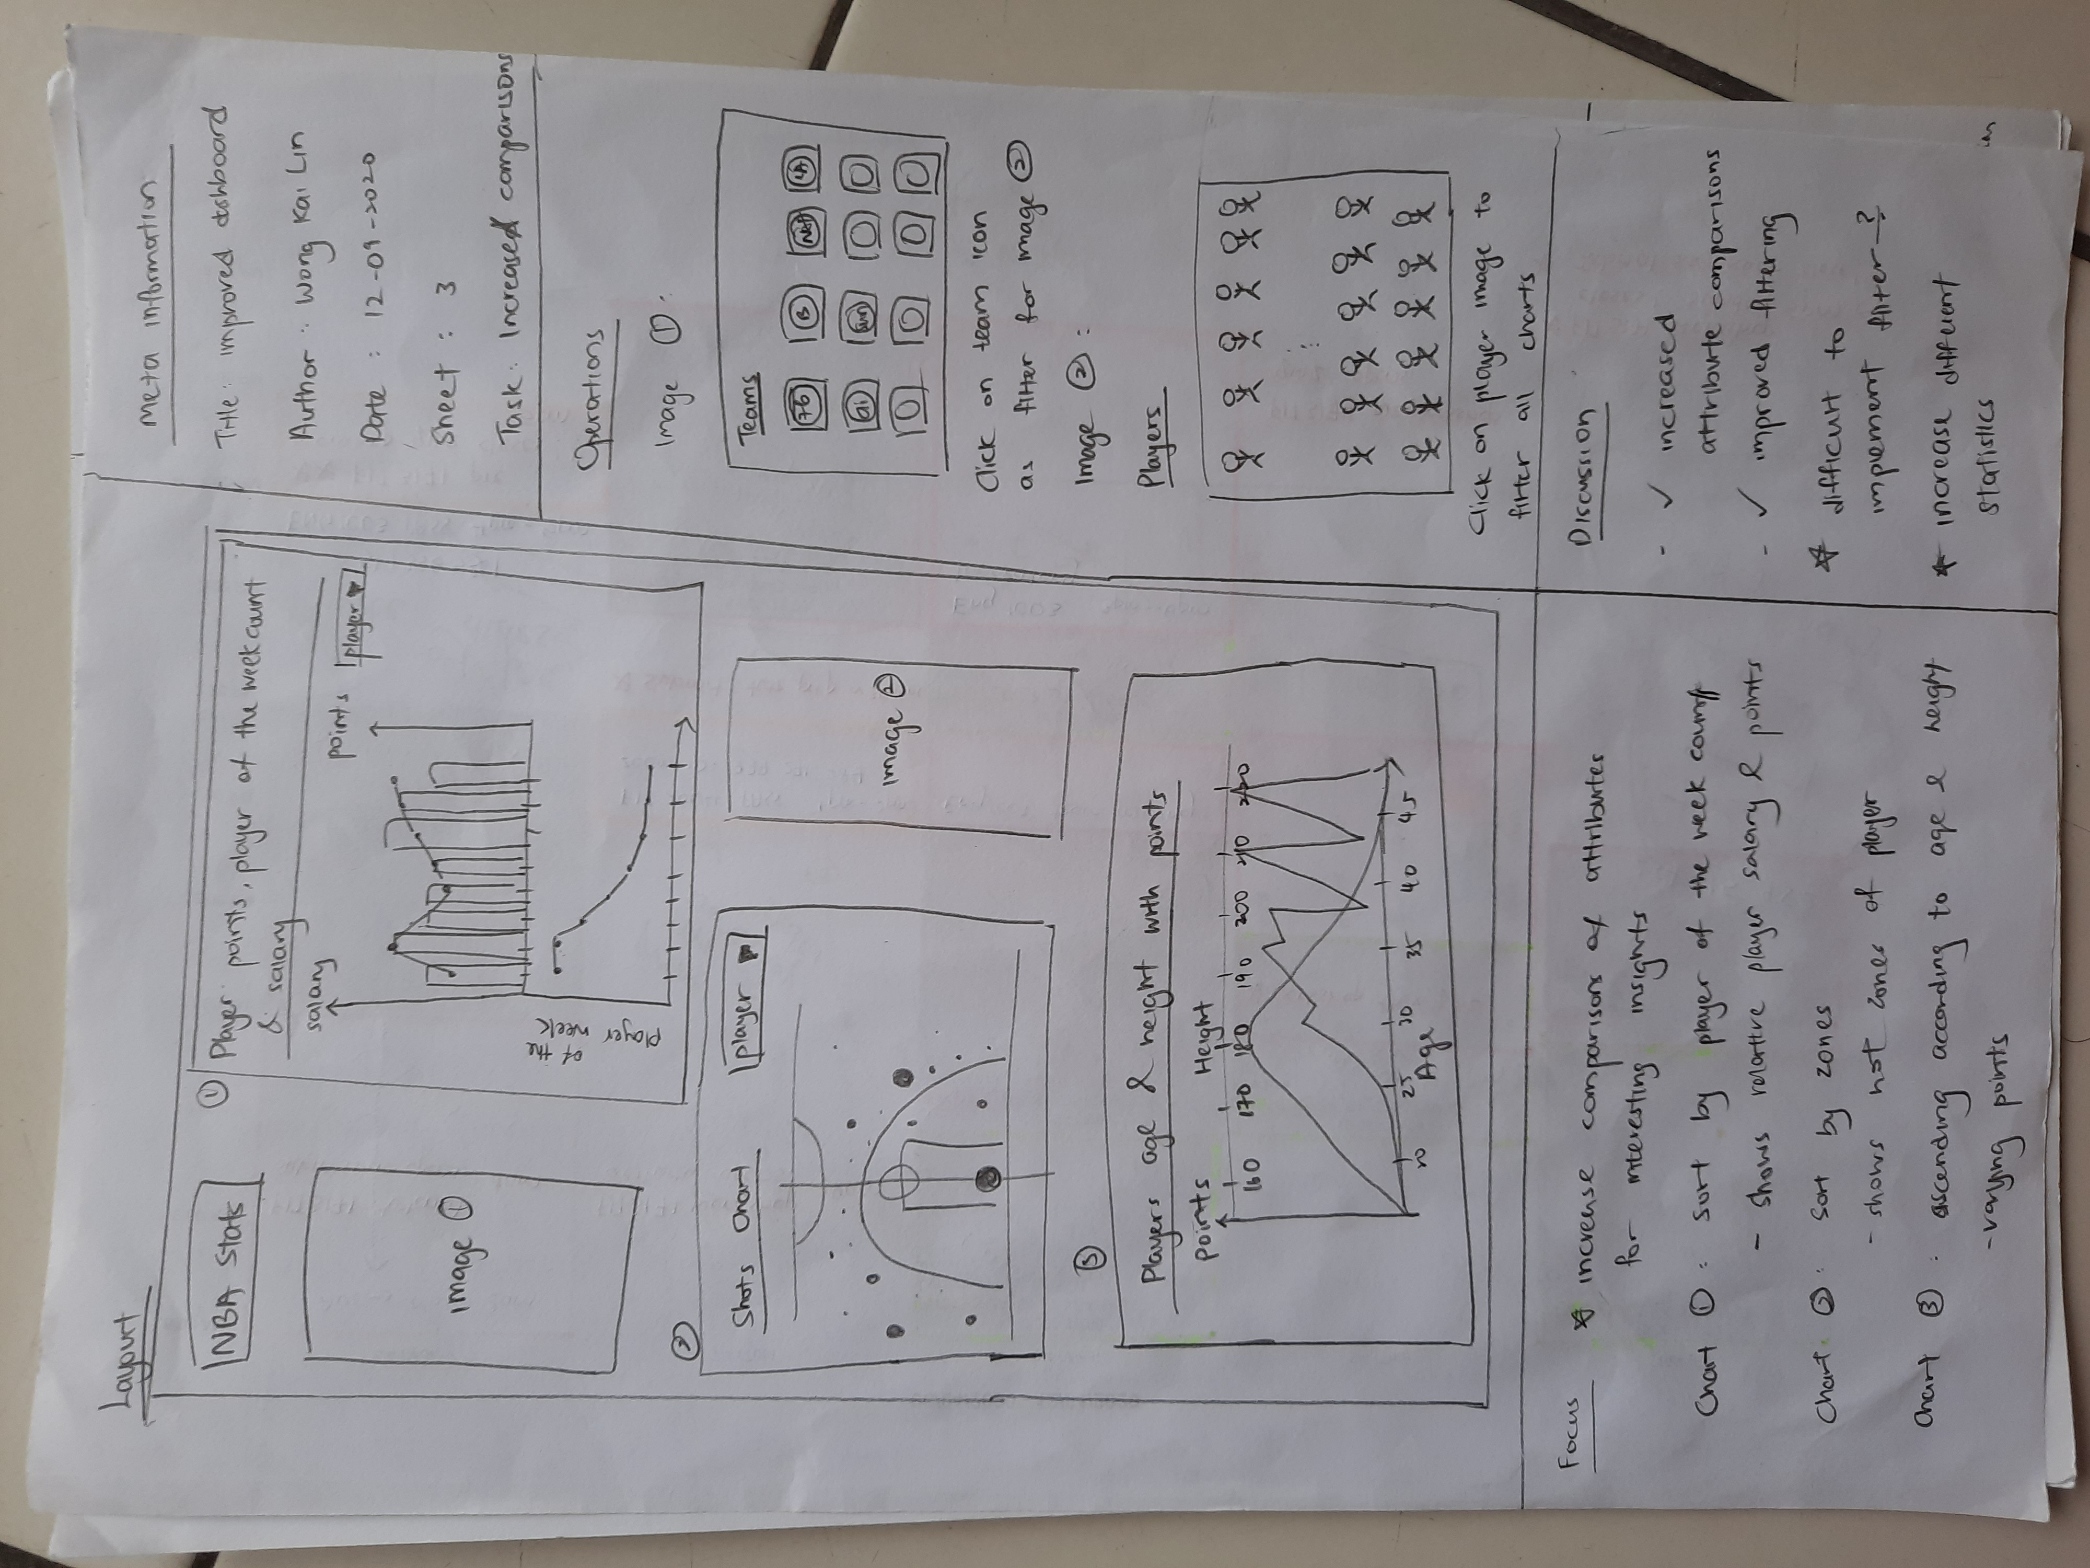 Layout
NBA Stats
image ①
①
Player points, player of the week count
& salary
salary
points
player
player of the week
②
Shots Chart
player
image ②
③
Players age & height with points
points
Height
160 170 180 190 200 210 220
20 25 30 35 40 45
Age
Meta information
Title: improved dashboard
Author: Wong Kai Lin
Date: 12-09-2020
Sheet: 3
Task: Increased comparisons
Operations
Image ①:
Teams
76 B NBA LA
Sun
Click on team icon
as filter for image ②
Image ②:
Players
Click on player image to
filter all charts
Focus
increase comparisons of attributes
for interesting insights
Chart ①: sort by player of the week count
- shows relative player salary & points
Chart ②: sort by zones
- shows hot zones of player
Chart ③: ascending according to age & height
- varying points
Discussion
- ✓ increased
attribute comparisons
- ✓ improved filtering
difficult to
implement filter - ?
increase different
statistics